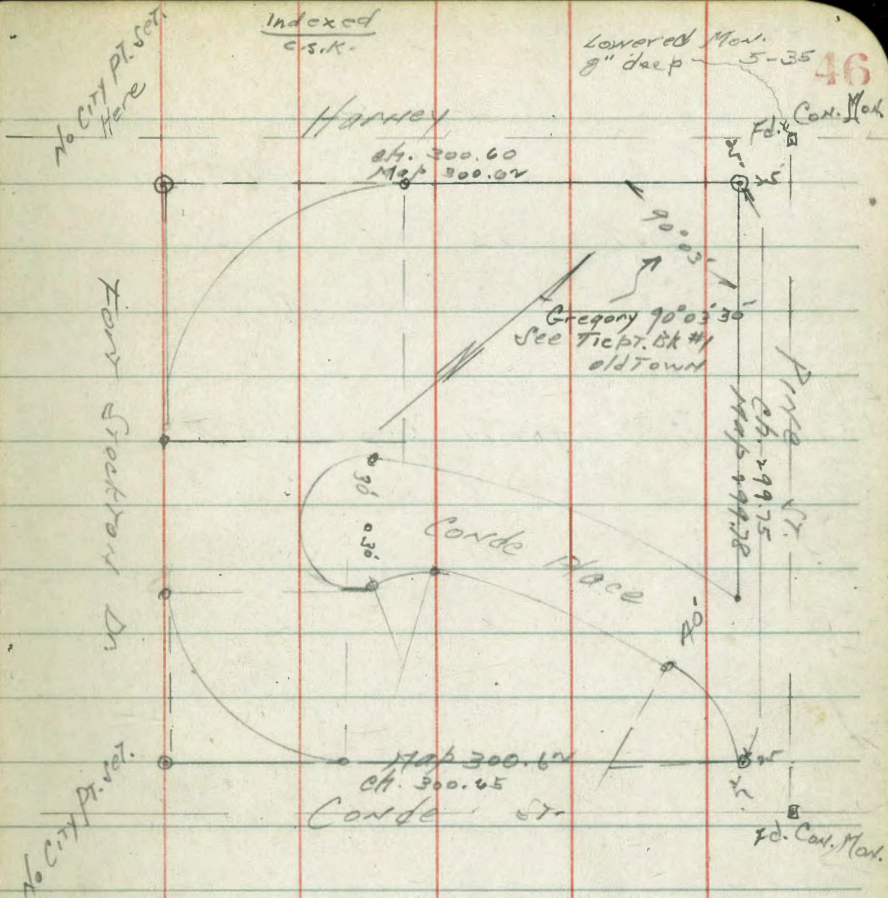 Indexed
C.S.K.
No City Pt. Set.
Here
Lowered Mon.
8" deep - 5-35
46
Harney
Fd. Con. Mon.
ch. 300.60
Map 300.62
25'
25'
90°03'
Gregory 90°03'30"
See Tie pt. Bk #1
old Town
Fort Stockton Dr.
Pine St.
Ch. 299.75
Map 299.78
30'
30'
Conde Place
40'
Map 300.62
ch. 300.65
Conde St.
25'
25'
No City Pt. Set.
Fd. Con. Mon.